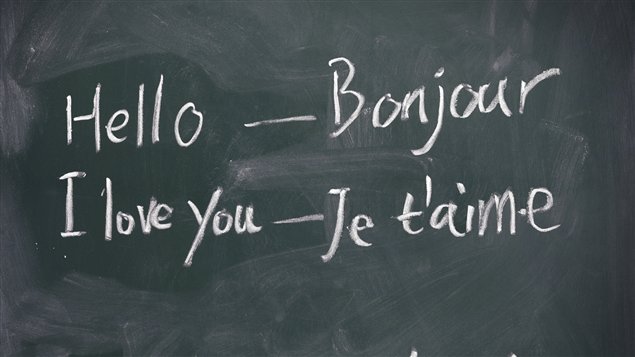 Hello — Bonjour
I love you — Je t'aime